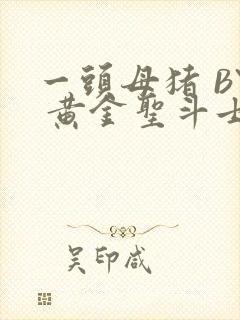 一頭母猪 BY
黄金聖斗士
吴印咸